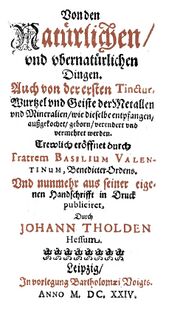 Von den
Natürlichen/
vnd vbernatürlichen
Dingen.
Auch von der ersten Tinctur,
Wurtzel vnd Geiste der Metallen
vnd Mineralien/ wie dieselbe entpfangen,
außgekochet/ geborn/ verendert vnd
vermehret werden.
Trewlich eröffnet durch
Fratrem BASILIUM VALEN-
TINUM, Benedicter-Ordens.
Und nunmehr aus seiner eige-
nen Handschrifft in Druck
publiciret,
Durch
JOHANN THOLDEN
Hessum.
Leipzig/
In vorlegung Bartholomæi Voigts.
ANNO M. DC. XXIV.